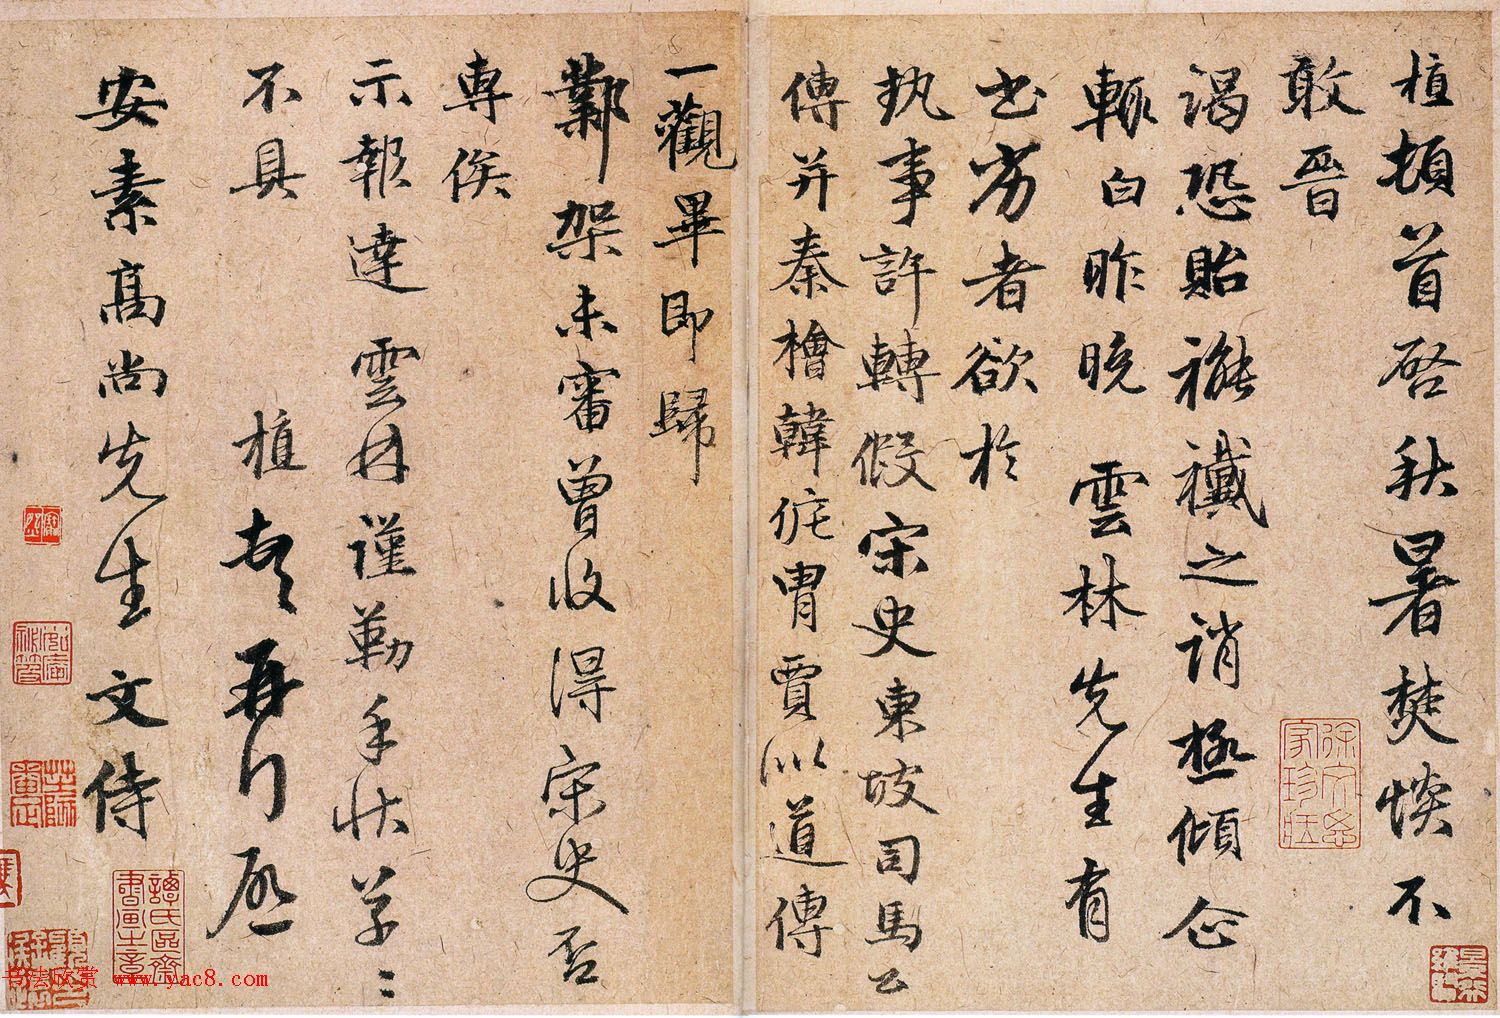 植頓首啓秋暑焚惔不
敢晉
謁恐貽襶之誚極傾企
輒白昨晚雲林先生有
出示者欲於
執事許轉假宋史東坡司馬公
傳并秦檜韓侂冑賈似道傳
一觀畢即歸
鄴架未審曾收得宋史否
專俟
示報達雲林謹勒手狀草〻
不具 植頓首再行啓
安素高尚先生文侍
譚氏區齋書畫之章
书法欣赏 www.yac8.com